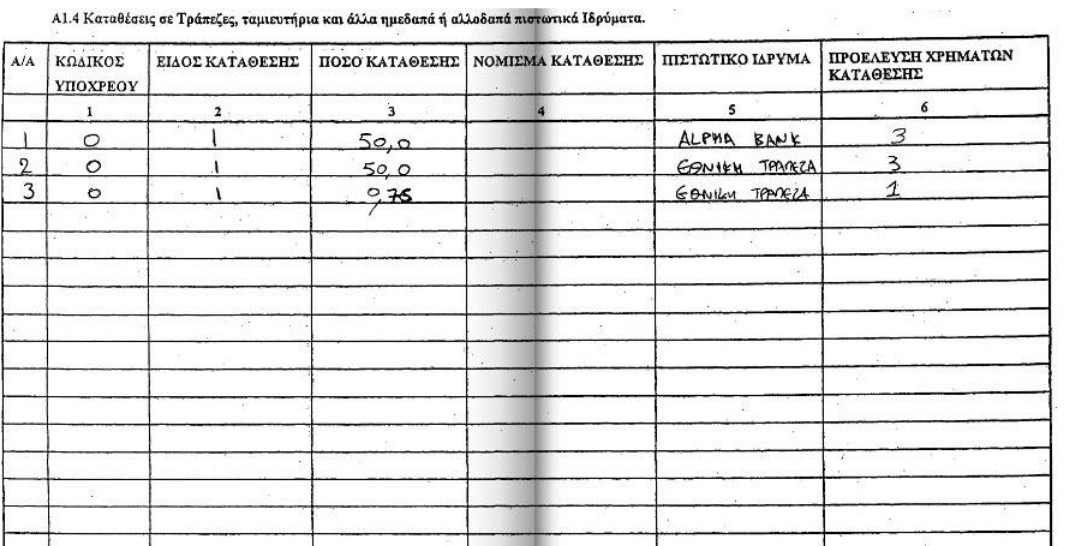 Α1.4 Καταθέσεις σε Τράπεζες, ταμιευτήρια και άλλα ημεδαπά ή αλλοδαπά πιστωτικά Ιδρύματα.
Α/Α ΚΩΔΙΚΟΣ ΥΠΟΧΡΕΟΥ ΕΙΔΟΣ ΚΑΤΑΘΕΣΗΣ ΠΟΣΟ ΚΑΤΑΘΕΣΗΣ ΝΟΜΙΣΜΑ ΚΑΤΑΘΕΣΗΣ ΠΙΣΤΩΤΙΚΟ ΙΔΡΥΜΑ ΠΡΟΕΛΕΥΣΗ ΧΡΗΜΑΤΩΝ ΚΑΤΑΘΕΣΗΣ
1 2 3 4 5 6
1 0 1 50,0 ALPHA BANK 3
2 0 1 50,0 ΕΘΝΙΚΗ ΤΡΑΠΕΖΑ 3
3 0 1 0,75 ΕΘΝΙΚΗ ΤΡΑΠΕΖΑ 1